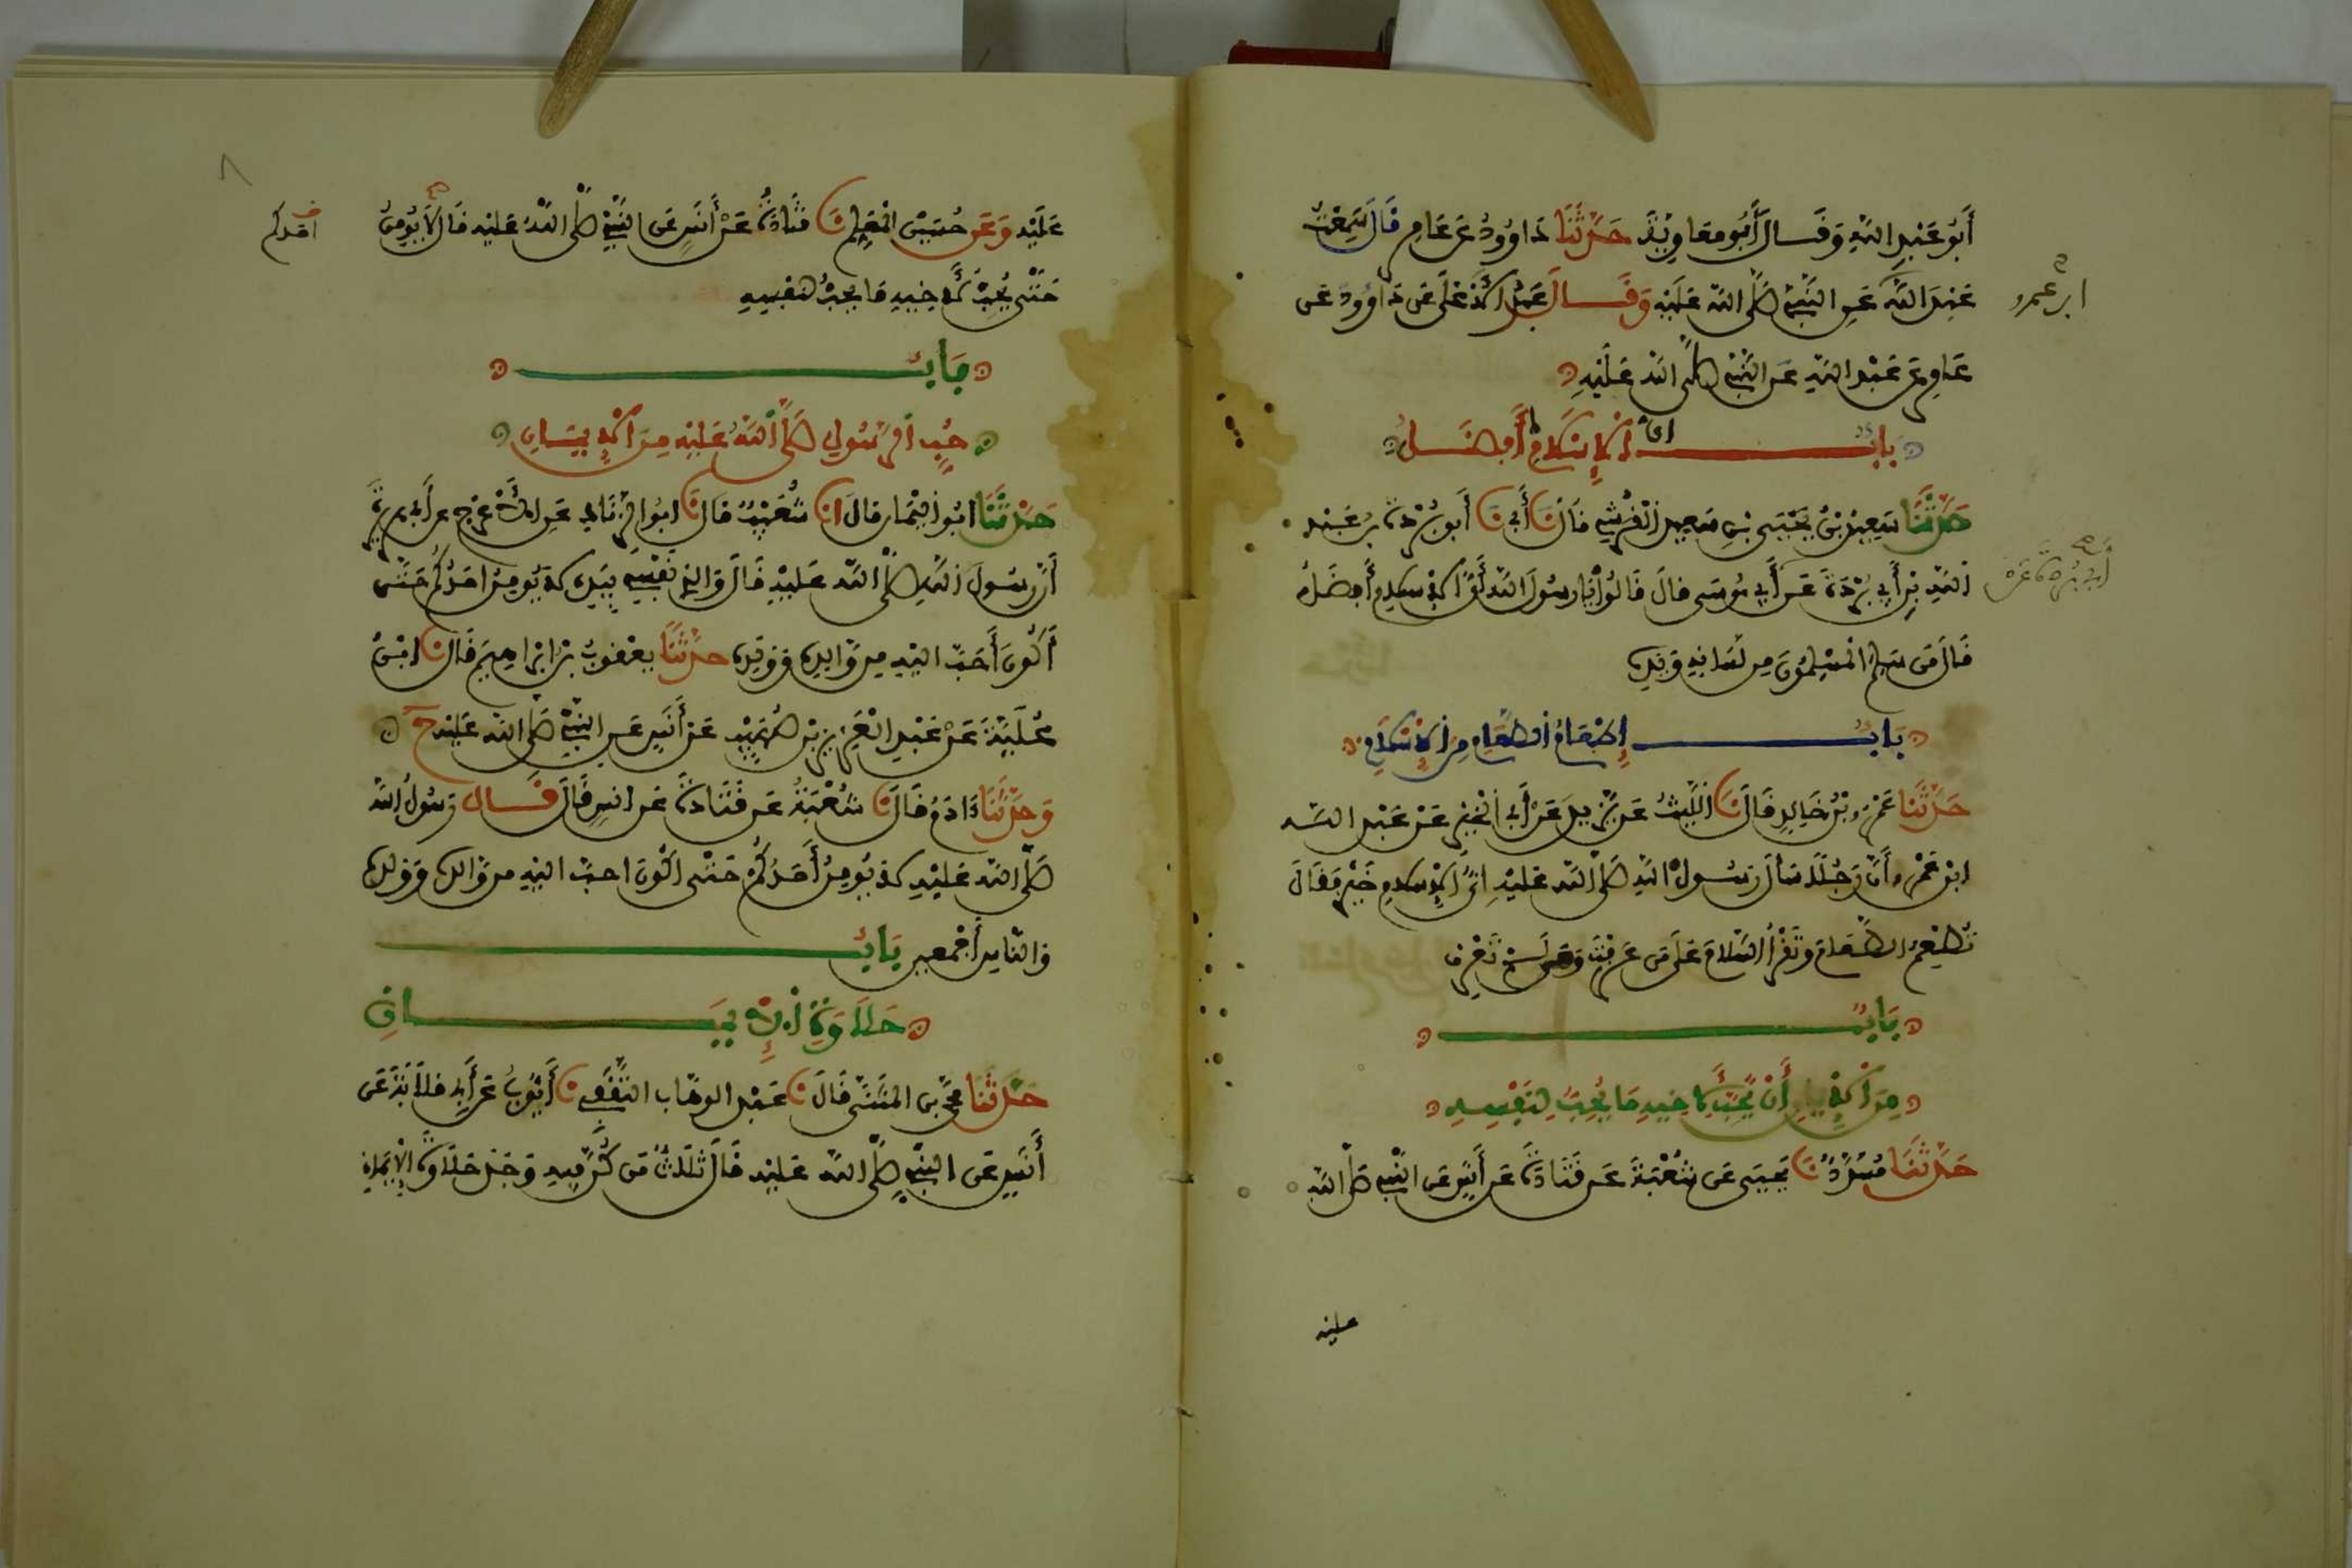 أَبُو عَبْدِ اللهِ وَقَــالَ أَبُو مُعَاوِيَةَ حَدَّثَنَا دَاوُودُ عَن عَامِرٍ قَالَ سَمِعْتُ
عَبْدَ اللَّهِ عَنِ النَّبِيِّ صَلَّى اللَّه عَلَيْهِ وَقَــالَ عَبْدُ الأَعْلَى عَن دَاوُودَ عَن
ابن عمرو
عَامِرٍ عَن عَبْدِ اللَّهِ عَنِ النَّبِيِّ صَلَّى اللَّه عَلَيْهِ
بَابُ أَيُّ الإِسْلَامِ أَفْضَــلُ
حَدَّثَنَا سَعِيدُ بْنُ يَحْيَى بْنِ سَعِيدٍ الْقُرَشِيِّ قَالَ نَا أَبِي نَا أَبُو بُرْدَةَ بْنُ عَبْدِ
اللَّهِ بْنِ أَبِي بُرْدَةَ عَن أَبِي مُوسَى قالَ قَالُوا يَا رسُولَ اللَّه أَيُّ الإِسلامِ أَفْضَلُ
أبي بردة عن
قَالَ مَن سَلِمَ الْمُسْلِمُونَ مِن لِسَانِهِ وَيَدِهِ
بَابُ إِطْعَامُ الطَّعَامِ مِنَ الإِسْلَامِ
حَدَّثَنَا عَمْرُو بْنُ خَالِدٍ قَالَ نَا اللَّيْثُ عَن يَزِيدَ عَنْ أَبِي الْخَيْرِ عَنْ عَبْدِ اللَّــه
ابْنِ عَمْرٍو أَنَّ رَجُلًا سَأَلَ رَسُولَ اللَّهِ صَلَّى اللَّه عَلَيْهِ أَيُّ الإِسلامِ خَيْرٌ فَقَالَ
تُطْعِمُ الطَّعَامَ وَتَقْرَأُ السَّلَامَ عَلَى مَن عَرَفْتَ وَمَن لَــمْ تَعْرِف
بَابٌ
مِنَ الإِيمَانِ أَنْ يُحِبَّ لأَخِيهِ مَا يُحِبُّ لِنَفْسِــهِ
حَدَّثَنَا مُسَدَّدٌ نَا يَحْيَى عَن شُعْبَةَ عَن قَتَادَةَ عَن أَنَسٍ عَن النَّبِيِّ صَلَّى اللَّه
عليه
عَلَيْهِ وَعَن حُسَيْنٍ الْمُعَلِّمِ نَا قَتَادَةُ عَنْ أَنَسٍ عَنِ النَّبِيِّ صَلَّى اللَّهُ عَلَيْهِ قَالَ لاَ يُؤْمِنُ
احدكم
حَتَّى يُحِبَّ لأَخِيهِ مَا يُحِبُّ لِنَفْسِهِ
بَابُ
حُبِّ الرَّسُولِ صَلَّى اللَّهُ عَلَيْهِ مِنَ الإِيمَــانِ
حَدَّثَنَا أَبُو الْيَمَانِ قَالَ انَا شُعَيْبٌ قَالَ نَا ابُو الزِّنَادِ عَنِ الأَعْرَجِ عن أَبِي هريرةَ
أَنَّ رَسُولَ اللَّهِ صَلَّى اللَّه عَلَيْهِ قَالَ وَالَّذِي نَفْسِي بِيَدِهِ لا يُومِنُ احَدُكُمْ حَتَّى
أَكُونَ أَحَبَّ الَيْهِ مِن وَّالِدِهِ وَوَلَدِهِ حدَّثَنَا يعْقُوبُ بْنُ ابْرَاهِيمَ قَالَ نَا ابْنُ
عُلَيَّةَ عَنْ عَبْدِ الْعَزِيزِ بْنِ صُهَيْبٍ عَنْ أَنَسٍ عَنِ النَّبِيِّ صَلَّى اللَّه عَلَيْهِ ح
وَحَدَّثَنَا ءَادَمُ قَالَ نَا شُعْبَةُ عَن قَتَادَةَ عَن انَسٍ قَالَ قَــالَ رَسُولُ اللَّه
صَلَّى اللَّه عَلَيْهِ لا يُومِنُ أَحَدُكُمْ حَتَّى اكُونَ احبَّ الَيْهِ مِن وَّالِدِهِ وَوَلَدِهِ
وَالنَّاسِ أَجْمَعِين بَابُ
حَلَاوَةِ الإِيمَــانِ
حَدَّثَنَا مُحَمَّدُ بْنُ الْمُثَنَّى قَالَ نَا عَبْدُ الْوَهَّابِ الثَّقَفِيُّ نَا أَيُّوبُ عَن أَبِي قِلَابَةَ عَن
أَنَسٍ عَن النَّبِيِّ صَلَّى اللَّه عَلَيْهِ قَالَ ثَلَاثٌ مَن كُنَّ فِيهِ وَجَدَ حَلَاوَةَ الإِيمَانِ